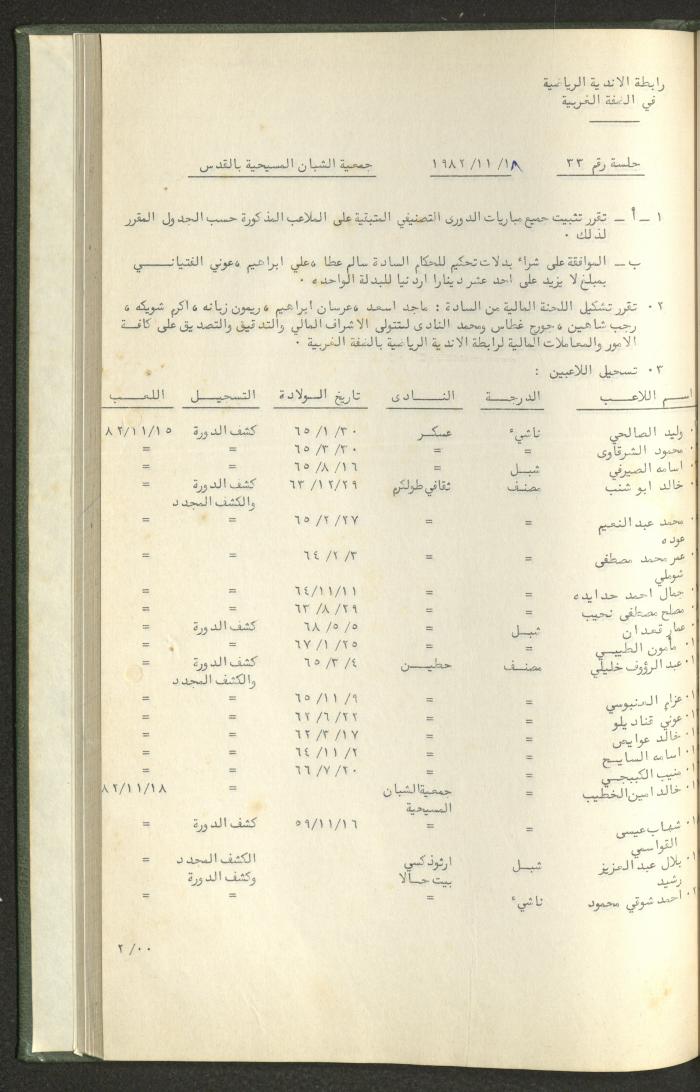 رابطة الاندية الرياضية
في الضفة الغربية
جلسة رقم ٣٣ ١٩٨٢/١١/١٨ جمعية الشبان المسيحية بالقدس
١ ــ أ ــ تقرر تثبيت جميع مباريات الدورى التصنيفي المتبقية على الملاعب المذكورة حسب الجدول المقرر
لذلك ٠
ب ــ الموافقة على شراء بدلات تحكيم للحكام السادة سالم عطا ، علي ابراهيم ، عوني الفتيانــــي
بمبلغ لا يزيد على احد عشر دينارا اردنيا للبدلة الواحدة ٠
٢ ٠ تقرر تشكيل اللجنة المالية من السادة : ماجد اسعد ، عرسان ابراهيم ، ريمون زبانه ، اكرم شويكه ،
رجب شاهين ، جورج غطاس ومحمد النادى لتتولى الاشراف المالي والتدقيق والتصديق على كافـــة
الامور والمعاملات المالية لرابطة الاندية الرياضية بالضفة الغربية ٠
٣ ٠ تسجيل اللاعبين :
اسم اللاعــــب الدرجـــة النـــــادى تاريخ الـــولادة التسجيـــل اللعـــب
وليد الصالحي ناشيء عسكـر ٦٥/١/٣٠ كشف الدورة ٨٢/١١/١٥
محمود الشرقاوى = = ٦٥/٣/٣٠ = =
اسامه الصيرفي شبــل = ٦٥/٨/١٦ = =
خالد ابو شنب مصنـف ثقافي طولكرم ٦٣/١٢/٢٩ كشف الدورة =
والكشف المجدد
محمد عبد النعيم = = ٦٥/٢/٢٧ = =
عوده
عمر محمد مصطفى = = ٦٤/٢/٣ = =
شوملي
جمال احمد حدايده = = ٦٤/١١/١١ = =
مصلح مصطفى نجيب = = ٦٣/٨/٢٩ = =
عمار قعدان شبـل = ٦٨/٥/٥ كشف الدورة =
مأمون الطيبــي = = ٦٧/١/٢٥ = =
عبد الرؤوف خليلي مصنـف حطيـــن ٦٥/٣/٤ كشف الدورة =
والكشف المجدد
عزام الدنبوسي = = ٦٥/١١/٩ = =
عوني قناديلو = = ٦٢/٦/٢٢ = =
خالد عوايص = = ٦٢/٣/١٧ = =
اسامه السايــح = = ٦٤/١١/٢ = =
منيب الكببجــي = = ٦٦/٧/٢٠ = =
خالد امين الخطيب = جمعية الشبان = ٨٢/١١/١٨
المسيحية
شهاب عيسى = = ٥٩/١١/١٦ كشف الدورة =
القواسمي
بلال عبد العزيز شبـل ارثوذكسي الكشف المجدد =
رشيد بيت جـالا وكشف الدورة
احمد شوقي محمود ناشيء = = =
٢/٠٠